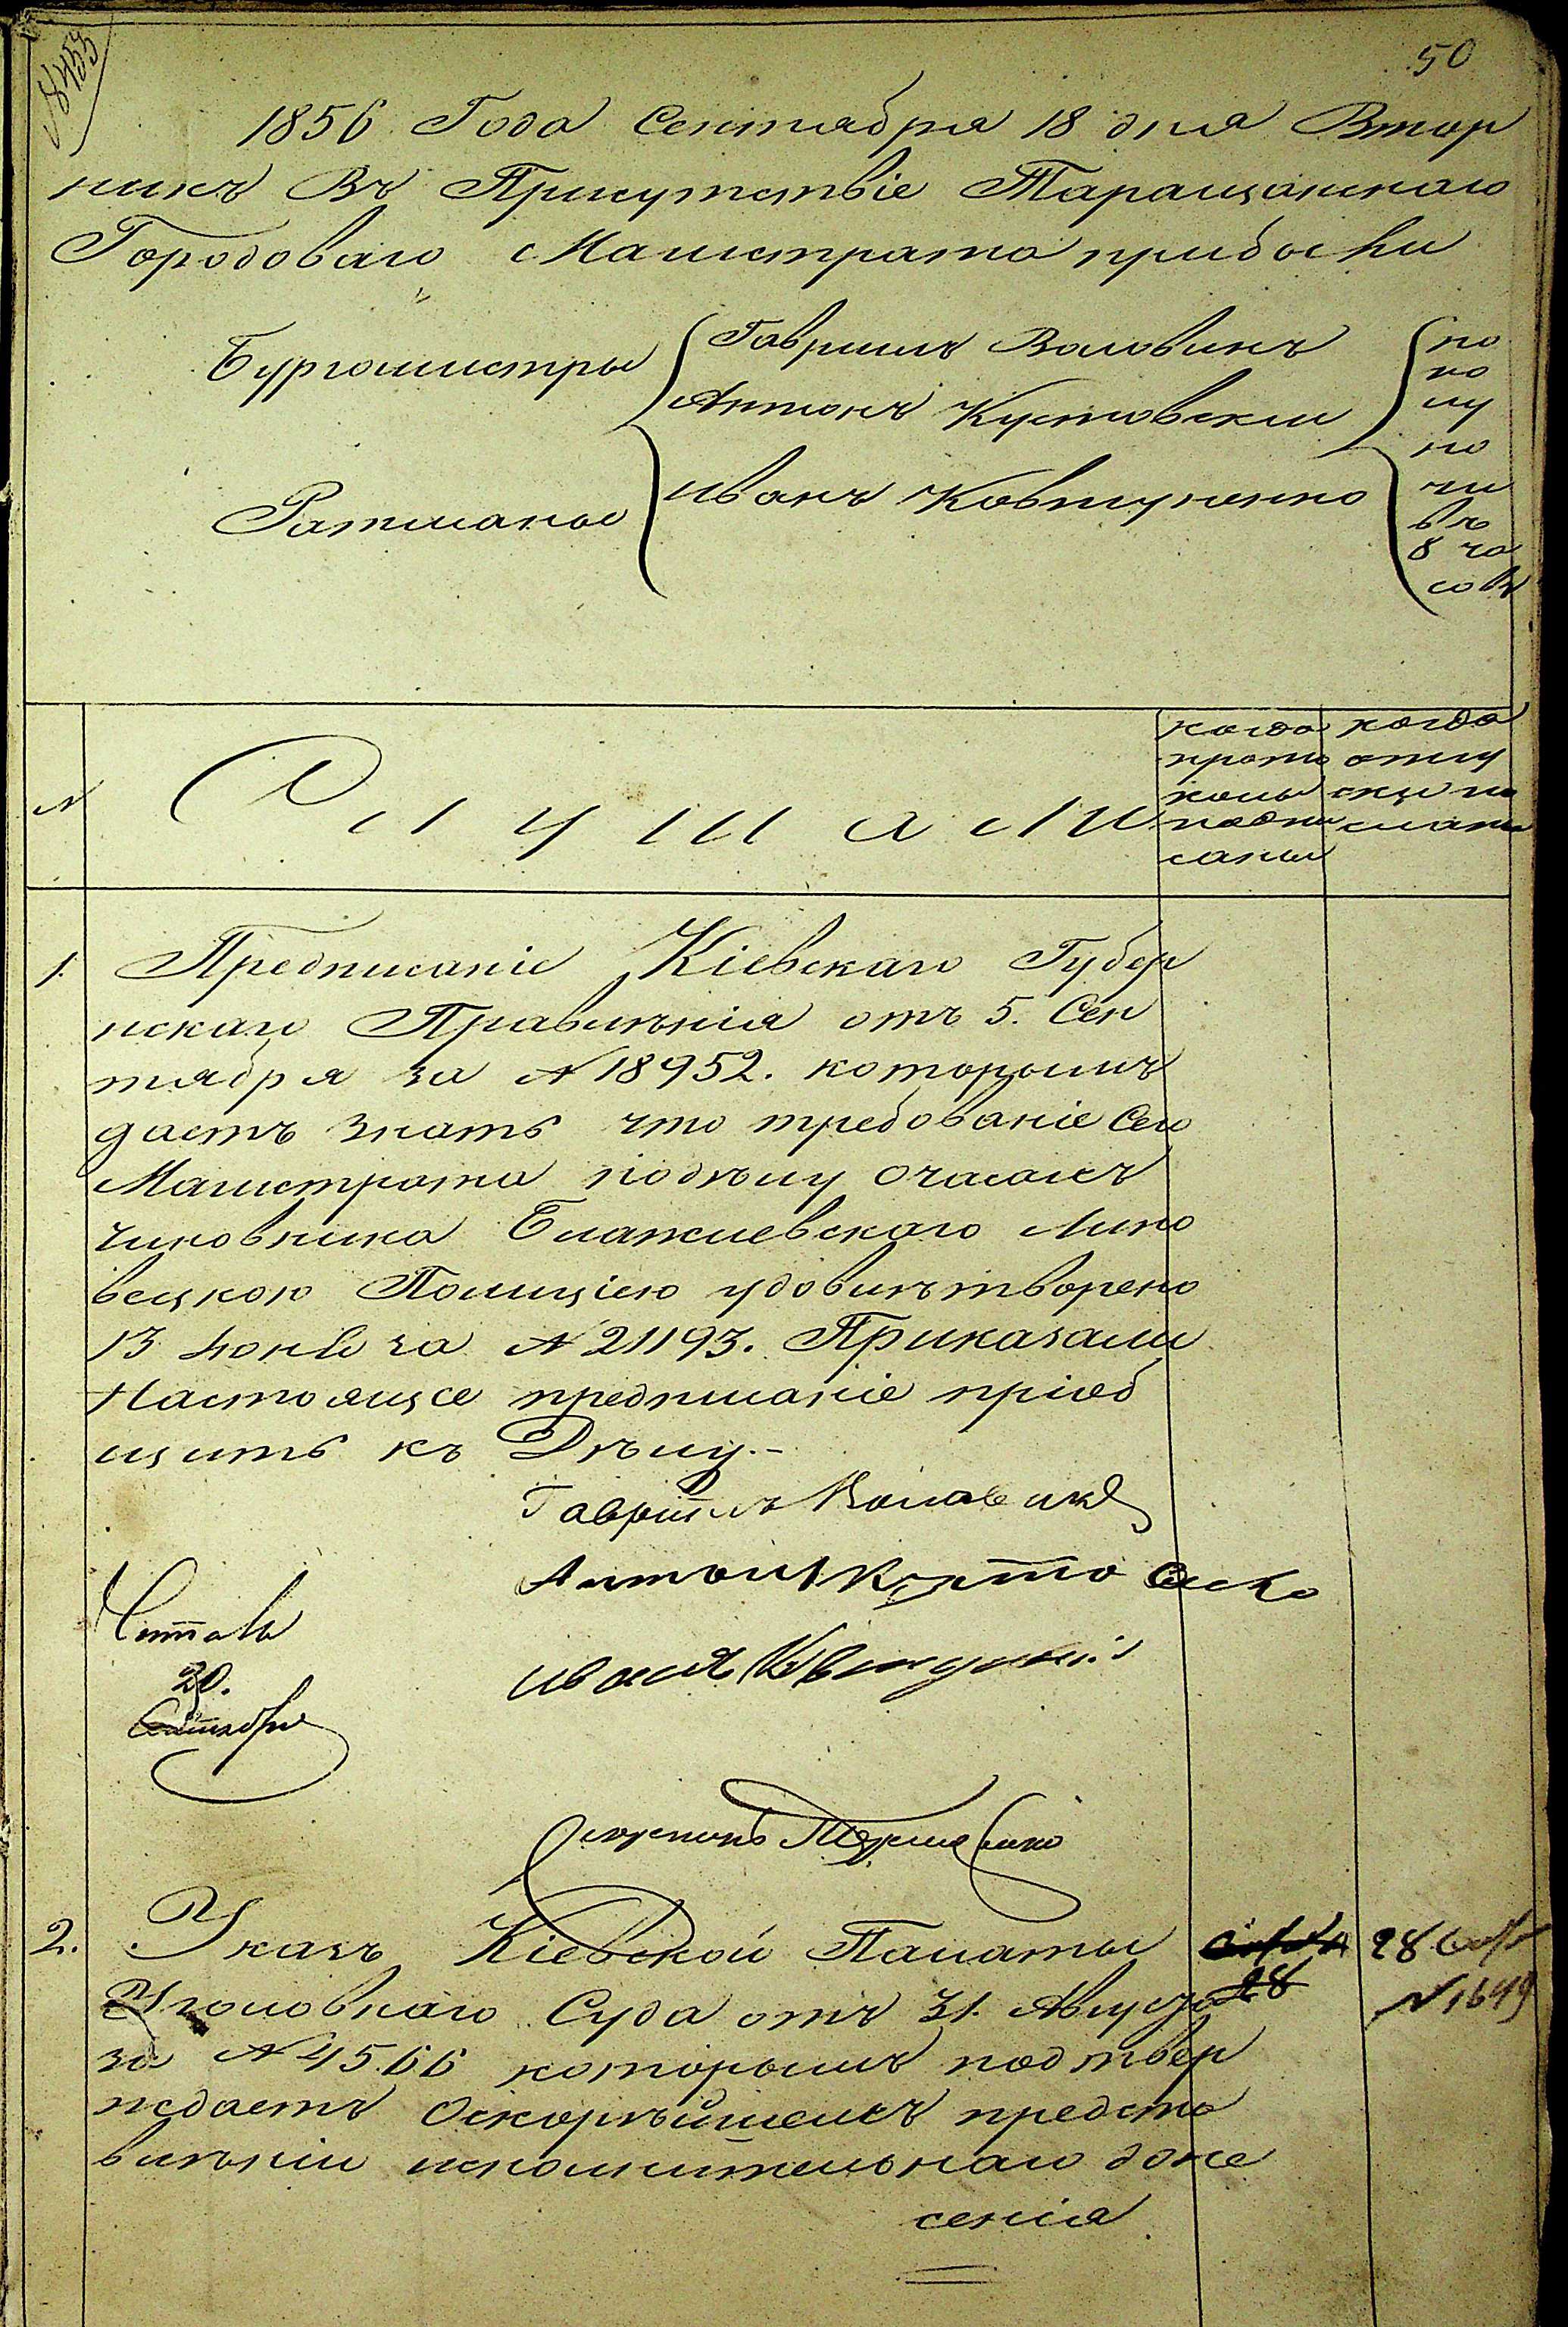 50
1856 Года Сентября 18 дня Втор
никъ Въ Присутствіе Таращанскаго
Городоваго Магистрата прибыли
Бургомистры
Гавріилъ Воловикъ
Антонъ Кустовскій
Ратманы
Иванъ Ковтуненко
по
по
лу
но
чи
въ
8 ча
совъ
№
Слушали
когда
прото
колы
подпи
саны
когда
отпу
ски по
сланы
1.
Предписаніе Кіевскаго Губер
нскаго Правленія отъ 5. Сен
тября за № 18952. которымъ
даетъ знать что требованіе Сего
Магистрата
чиновника Блажиевскаго Липо
вецкою Полицією удовлѣтворено
13 Іюня за № 21193. Приказали
Настоящее предписаніе пріоб
щить къ Дѣлу.-
Гаврііилъ Воловикъ
Антонъ
Иванъ
Читалъ
20.
Сентября
2.
Указъ Кіевской Палаты
Уголовнаго Суда отъ 31. Августа
за № 4566 которымъ подтвер
ждаетъ Оскорѣйшемъ предста
влѣніи исполнительнаго доне
сенія
28
28
№ 1649